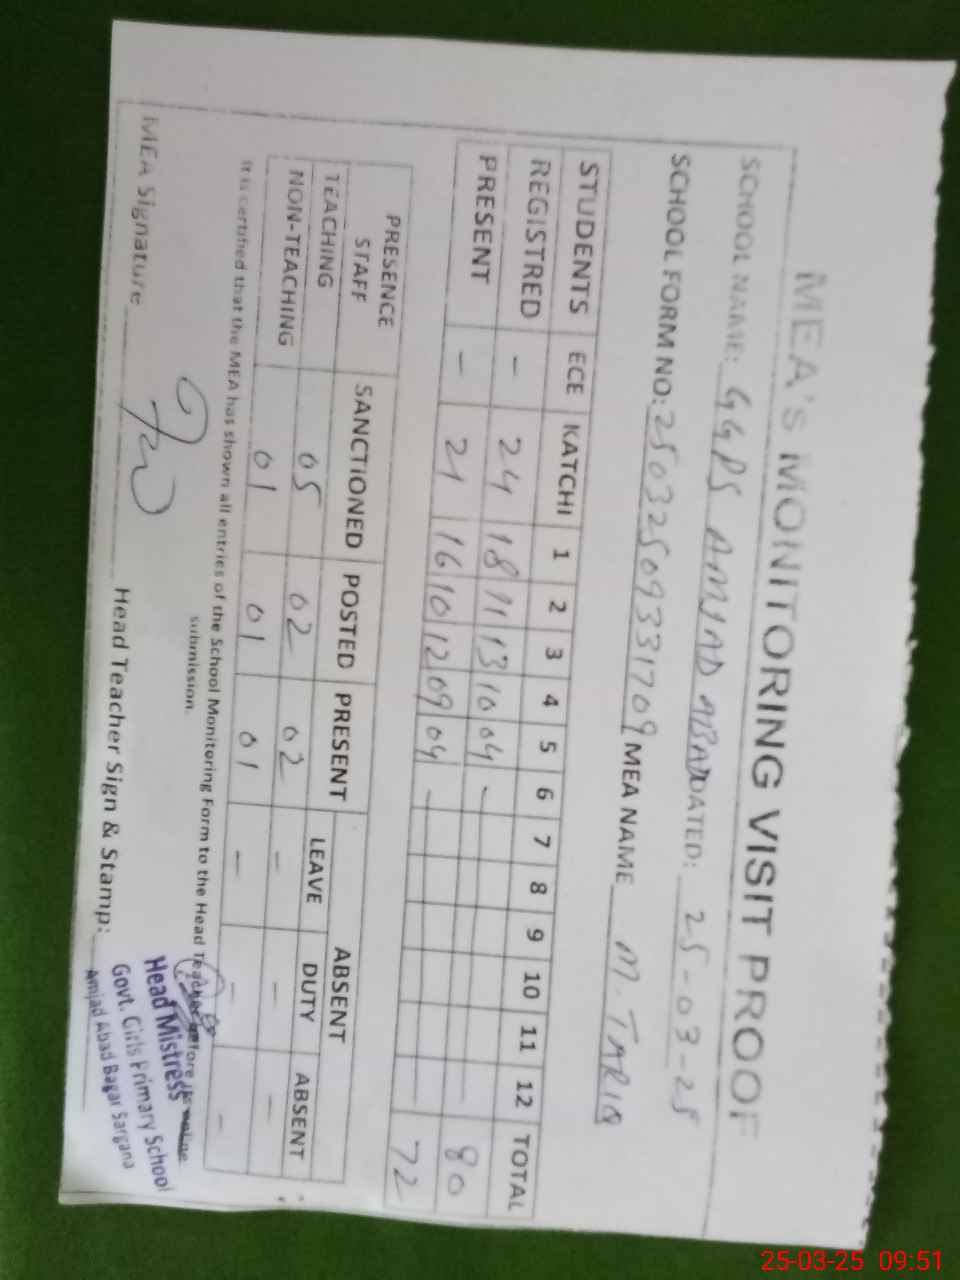 MEA'S MONITORING VISIT PROOF
SCHOOL NAME: GGPS AMJAD ABAD DATED: 25-03-25
SCHOOL FORM NO: 25032509331709 MEA NAME M. TARIQ
STUDENTS ECE KATCHI 1 2 3 4 5 6 7 8 9 10 11 12 TOTAL
REGISTRED - 24 18 11 13 10 04 - 80
PRESENT - 21 16 10 12 09 04 - 72
PRESENCE STAFF SANCTIONED POSTED PRESENT ABSENT
LEAVE DUTY ABSENT
TEACHING 05 02 02 - - -
NON-TEACHING 01 01 01 - - -
It is certified that the MEA has shown all entries of the School Monitoring Form to the Head Teacher before the online
submission.
MEA Signature Head Teacher Sign & Stamp:
Head Mistress
Govt. Girls Primary School
Amjad Abad Bagar Sargana
25-03-25 09:51